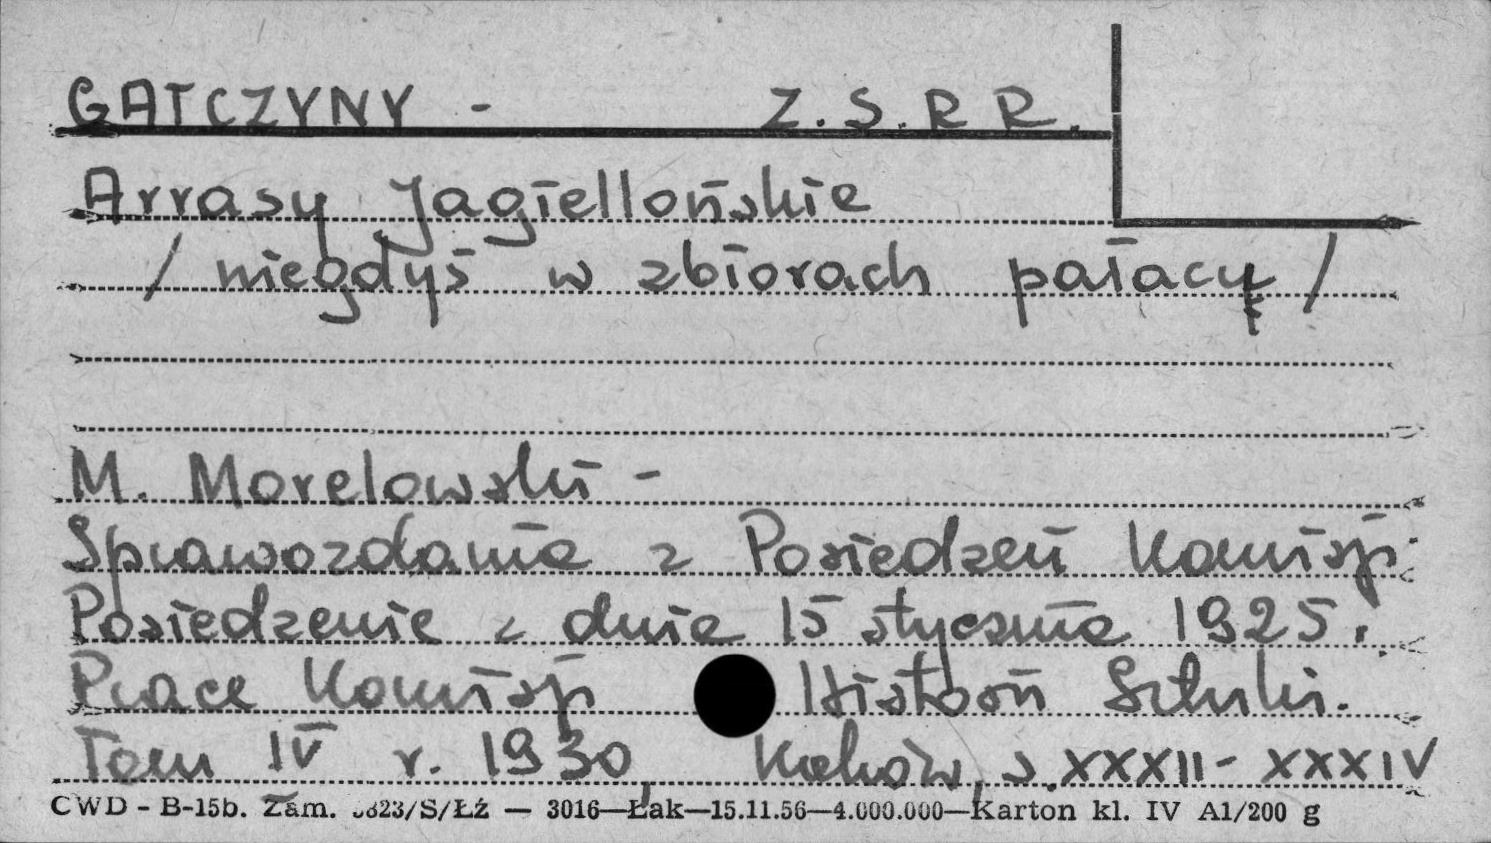 GATCZYNY - Z.S.R R.
Arrasy Jagiellońskie
/ niegdyś w zbiorach pałacy /
M. Morelowski -
Sprawozdanie z Posiedzeń Komisji
Posiedzenie z dnia 15 stycznia 1925.
Prace Komisji Historii Sztuki.
Tom IV r. 1930, Kraków, s. XXXII - XXXIV
CWD - B-15b. Zam. 3823/S/Łź — 3016—Łak—15.11.56—4.000.000—Karton kl. IV A1/200 g